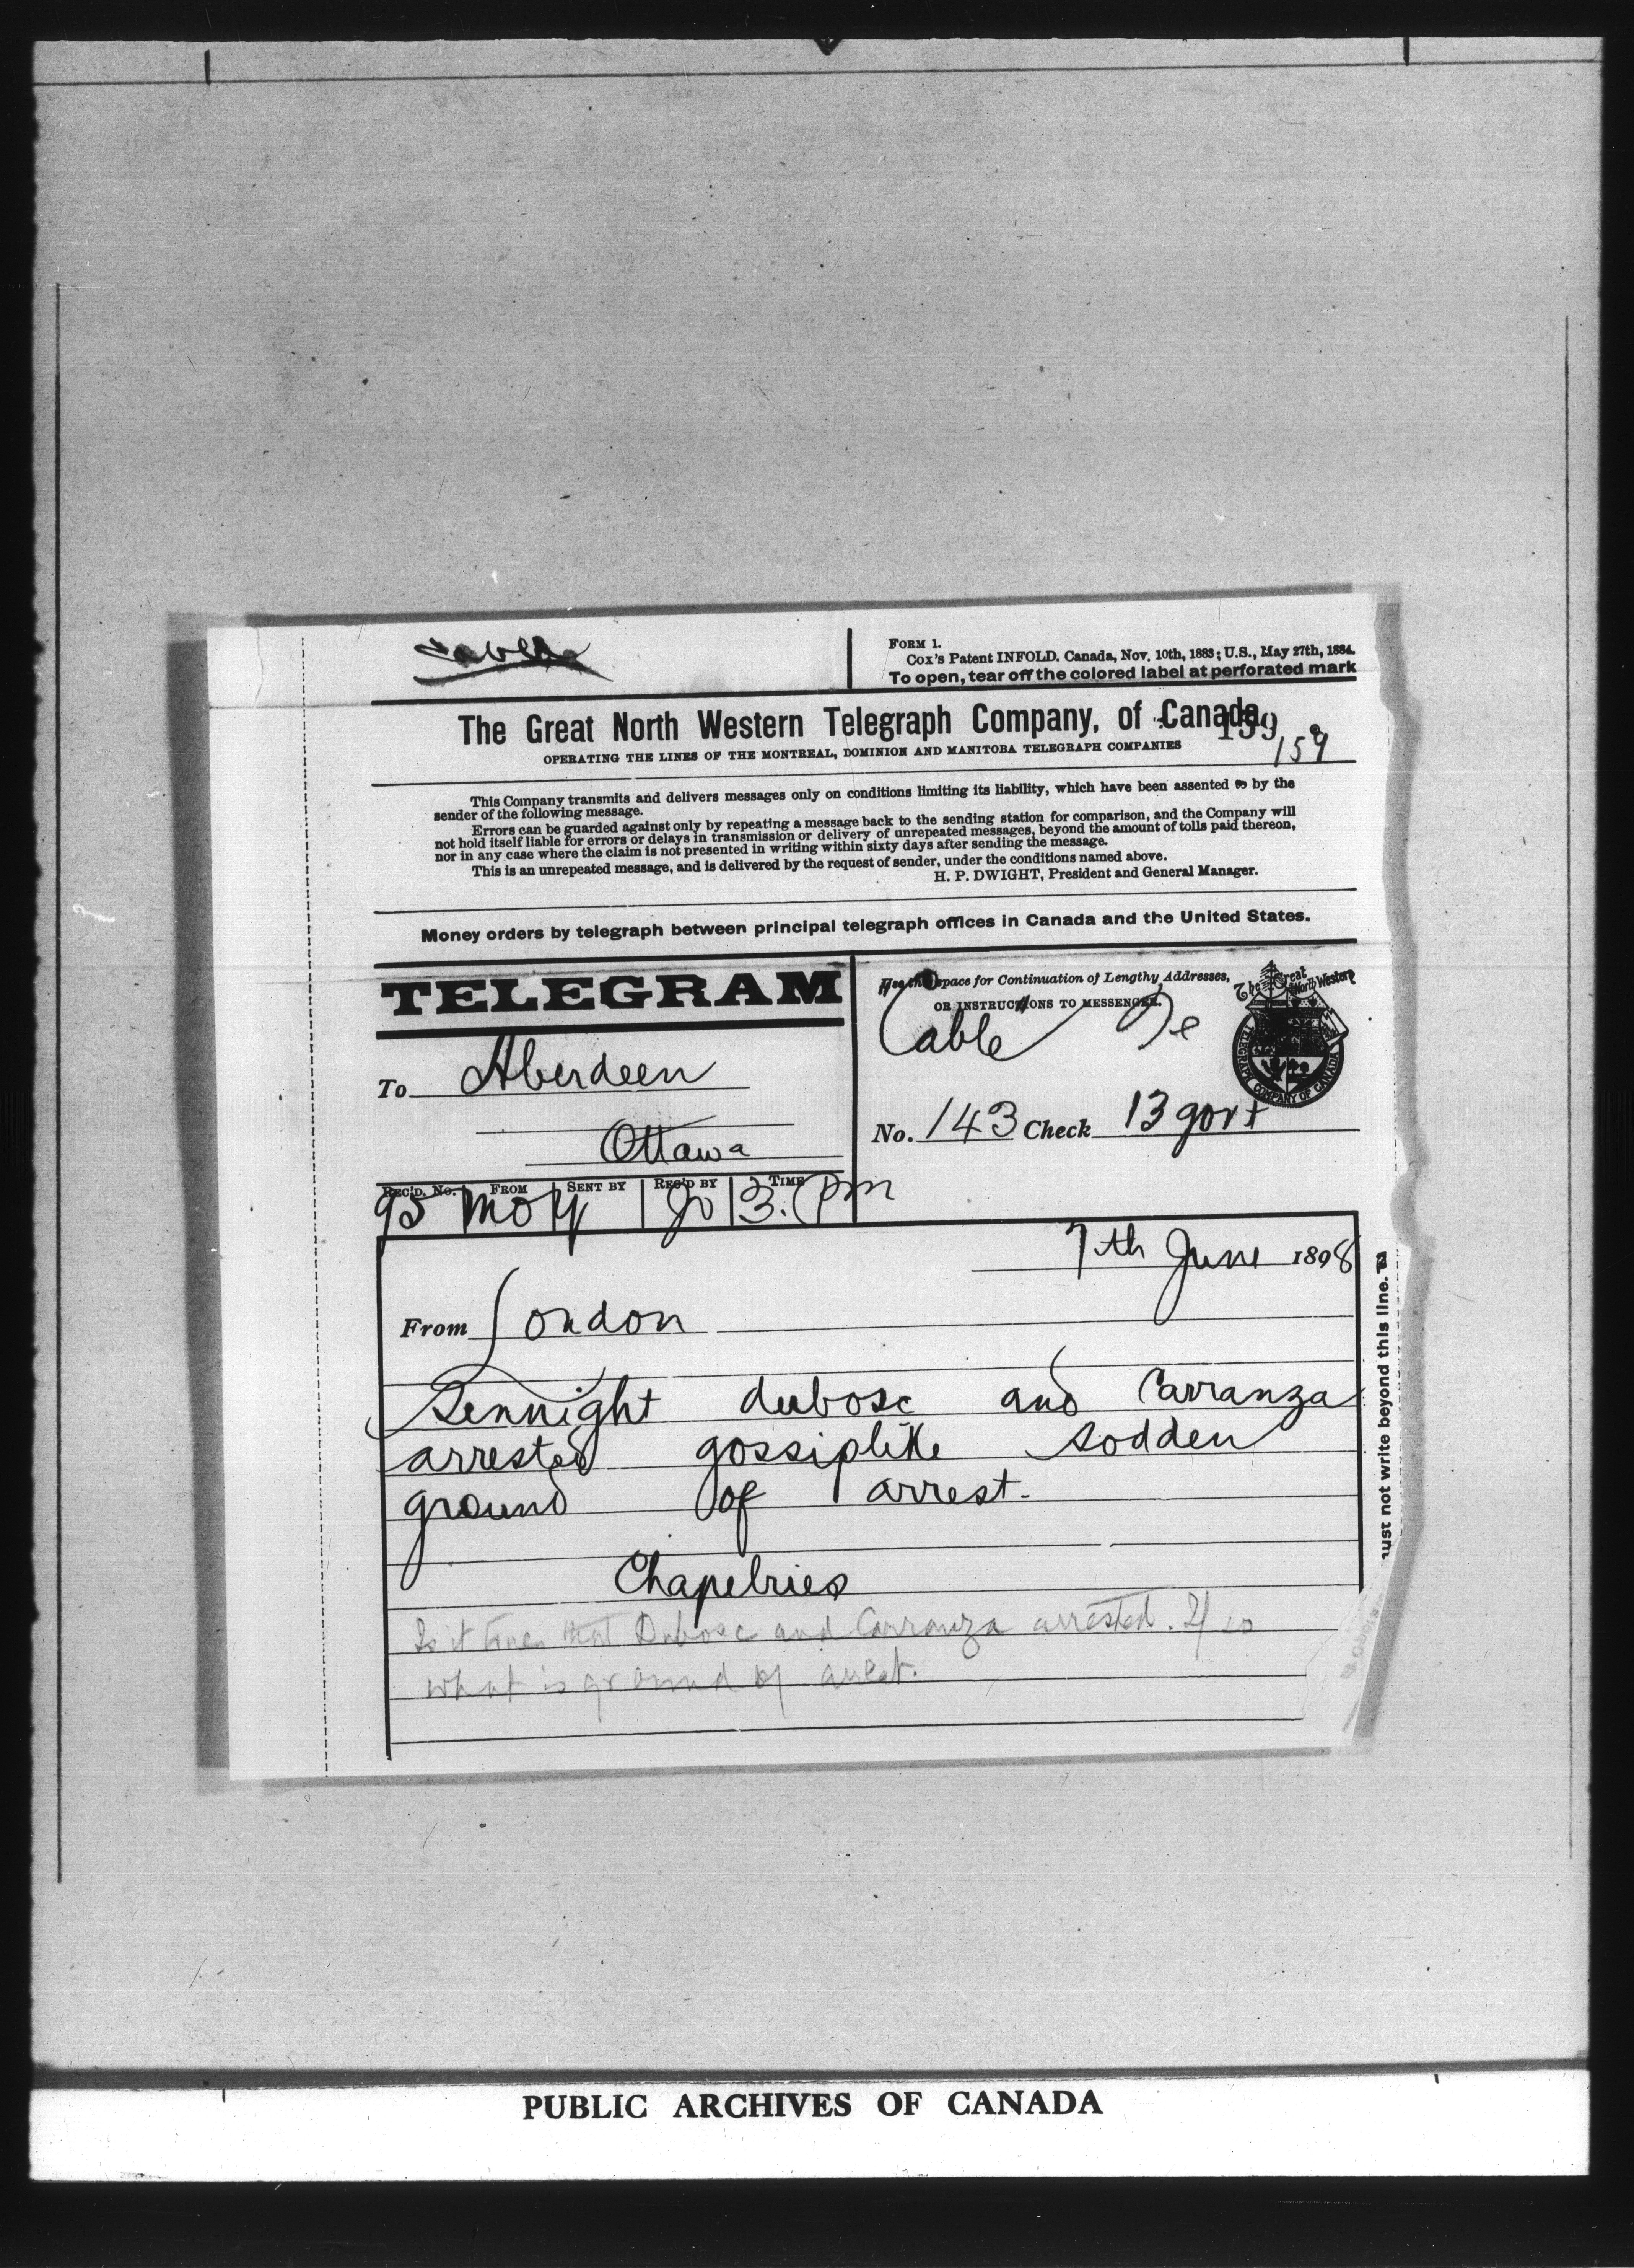 Cable
FORM 1.
Cox's Patent INFOLD. Canada, Nov. 10th, 1883; U.S., May 27th, 1884.
To open, tear off the colored label at perforated mark
The Great North Western Telegraph Company, of Canada.
159
OPERATING THE LINES OF THE MONTREAL, DOMINION AND MANITOBA TELEGRAPH COMPANIES
159
This Company transmits and delivers messages only on conditions limiting its liability, which have been assented to by the
sender of the following message.
Errors can be guarded against only by repeating a message back to the sending station for comparison, and the Company will
not hold itself liable for errors or delays in transmission or delivery of unrepeated messages, beyond the amount of tolls paid thereon,
nor in any case where the claim is not presented in writing within sixty days after sending the message.
This is an unrepeated message, and is delivered by the request of sender, under the conditions named above.
H. P. DWIGHT, President and General Manager.
Money orders by telegraph between principal telegraph offices in Canada and the United States.
TELEGRAM
Use this space for Continuation of Lengthy Addresses,
OR INSTRUCTIONS TO MESSENGER.
The Great North Western
TELEGRAPH COMPANY OF CANADA
Cable De
To Aberdeen
Ottawa
No. 143 Check 13 govt
REC'D. No. FROM SENT BY REC'D BY TIME
95 3. Pm
7th June 1898
From London
Sennight dubosc and Carranza
arrested gossiplike sodden
ground of arrest.
Chapelries
Is it true that Dubosc and Carranza arrested. If so
what is ground of arrest.
ust not write beyond this line.
PUBLIC ARCHIVES OF CANADA